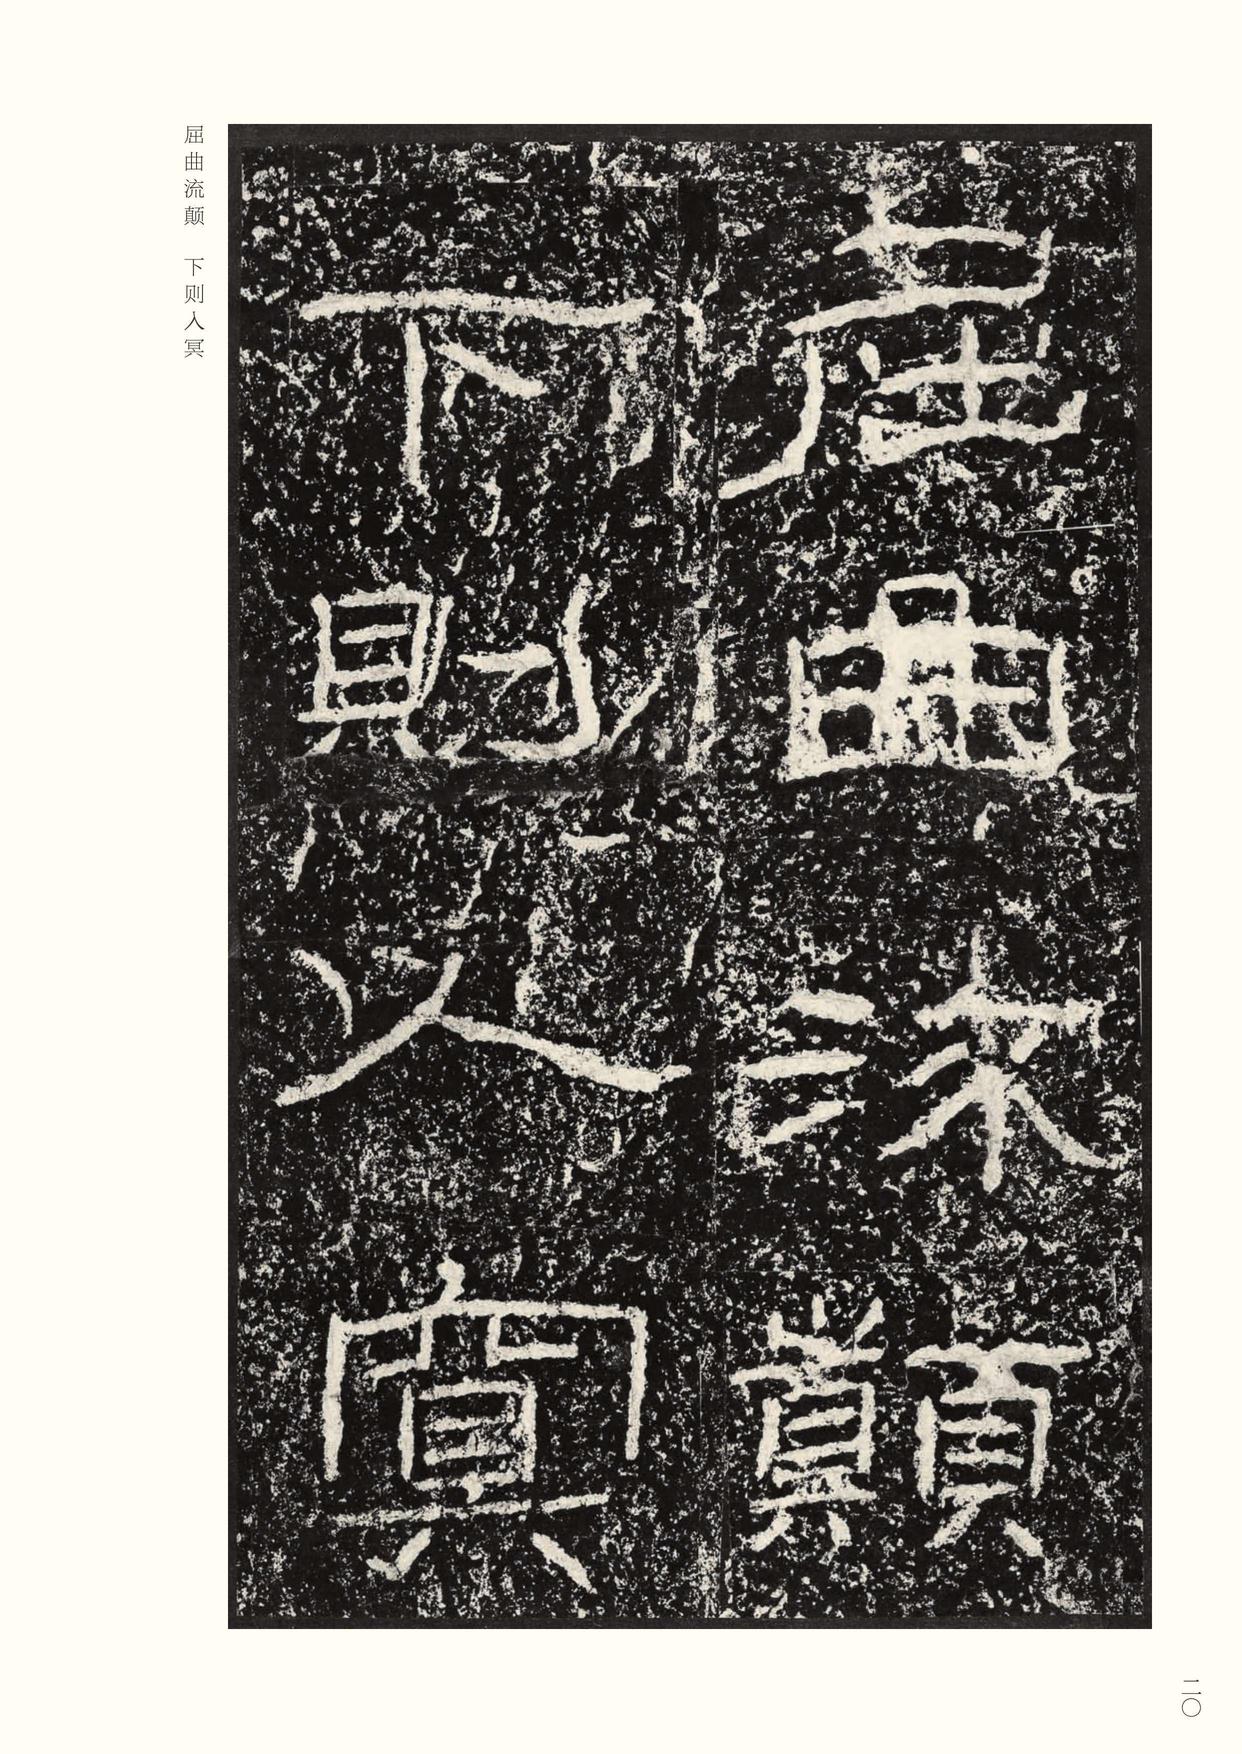 屈曲流顛
下則入冥
屈曲流颠　下则入冥
二〇